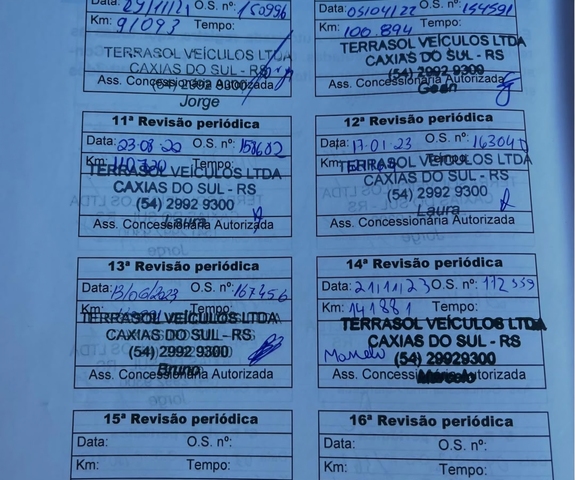 Data: 29/11/21 O.S. nº: 150996
Km: 91093 Tempo:
TERRASOL VEÍCULOS LTDA
CAXIAS DO SUL - RS
(54) 2992 9300
Ass. Concessionária Autorizada
Jorge
Data: 05/04/22 O.S. nº: 154591
Km: 100.894 Tempo:
TERRASOL VEÍCULOS LTDA
CAXIAS DO SUL - RS
(54) 2992 9300
Ass. Concessionária Autorizada
Gean
11ª Revisão periódica
Data: 23.08.22 O.S. nº:
Km: 110720 Tempo:
TERRASOL VEÍCULOS LTDA
CAXIAS DO SUL - RS
(54) 2992 9300
Laura
Ass. Concessionária Autorizada
12ª Revisão periódica
Data: 17.01.23 O.S. nº:
Km: Tempo:
TERRASOL VEÍCULOS LTDA
CAXIAS DO SUL - RS
(54) 2992 9300
Laura
Ass. Concessionária Autorizada
13ª Revisão periódica
Data: 13/06/2023 O.S. nº: 167456
Km: Tempo:
TERRASOL VEÍCULOS LTDA
CAXIAS DO SUL - RS
(54) 2992 9300
Bruno
Ass. Concessionária Autorizada
14ª Revisão periódica
Data: 21/11/23 O.S. nº: 172559
Km: 141881 Tempo:
TERRASOL VEÍCULOS LTDA
CAXIAS DO SUL - RS
Marcelo (54) 29929300
Ass. Concessionária Autorizada
15ª Revisão periódica
Data: O.S. nº:
Km: Tempo:
16ª Revisão periódica
Data: O.S. nº:
Km: Tempo: